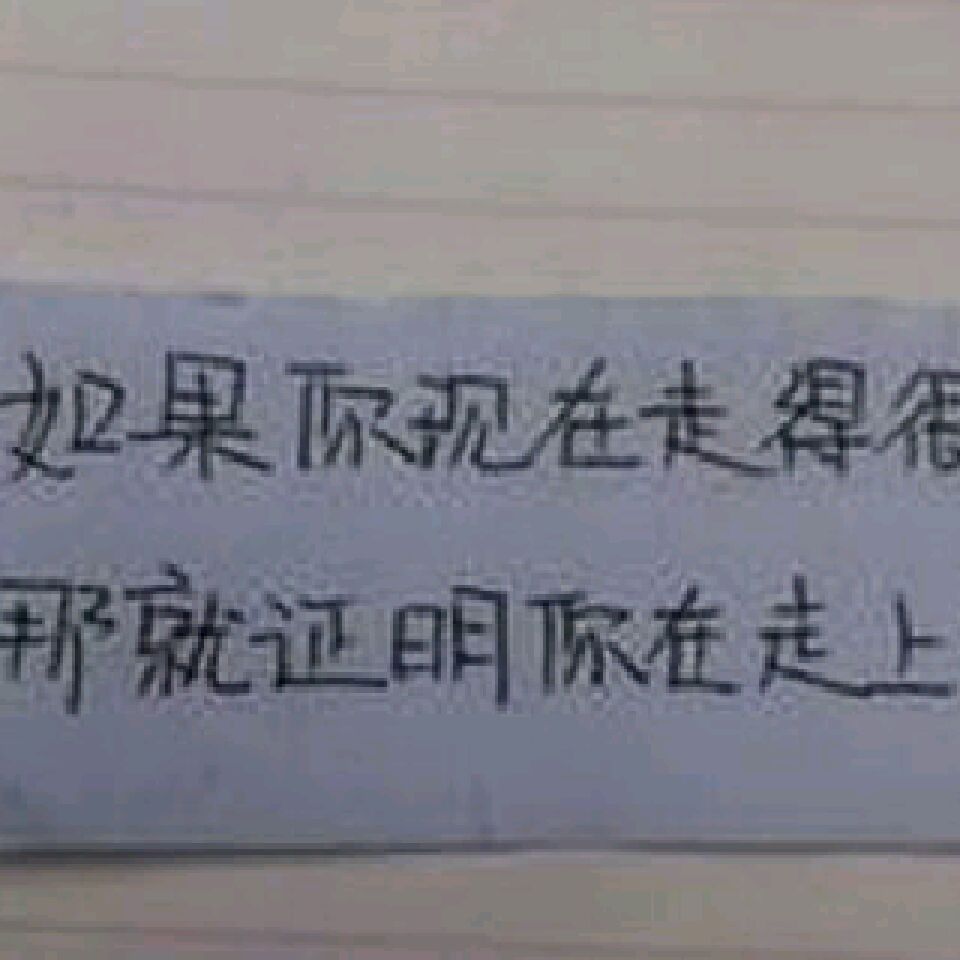 如果你现在走得很
那就证明你在走上